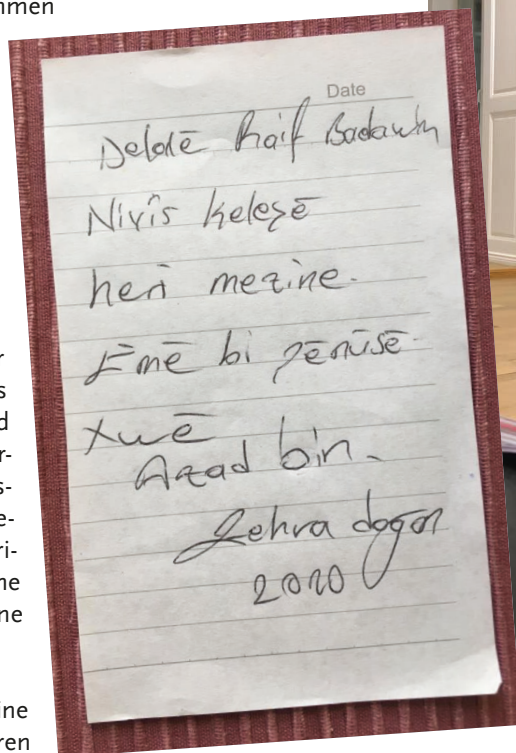 mmen
Date
Delalē Raif Badawh
Nivîs keleşē
heri mezine.
Ēmē bi pēnûsē
xwē
Azad bin.
Zehra dogan
2020
r
s
d
r-
s-
e-
ri-
ne
ne
ine
ren